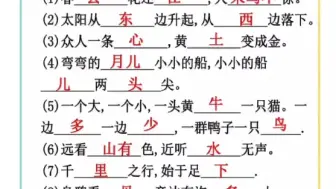 (2)太阳从 东 边升起,从 西 边落下。
(3)众人一条 心 ,黄 土 变成金。
(4)弯弯的 月儿 小小的船,小小的船
儿 两 头 尖。
(5)一个大,一个小,一头黄 牛 一只猫。一
边 多 一边 少 ,一群鸭子一只 鸟 .
(6)远看 山有 色,近听 水 无声。
(7)千 里 之行,始于足 下 .